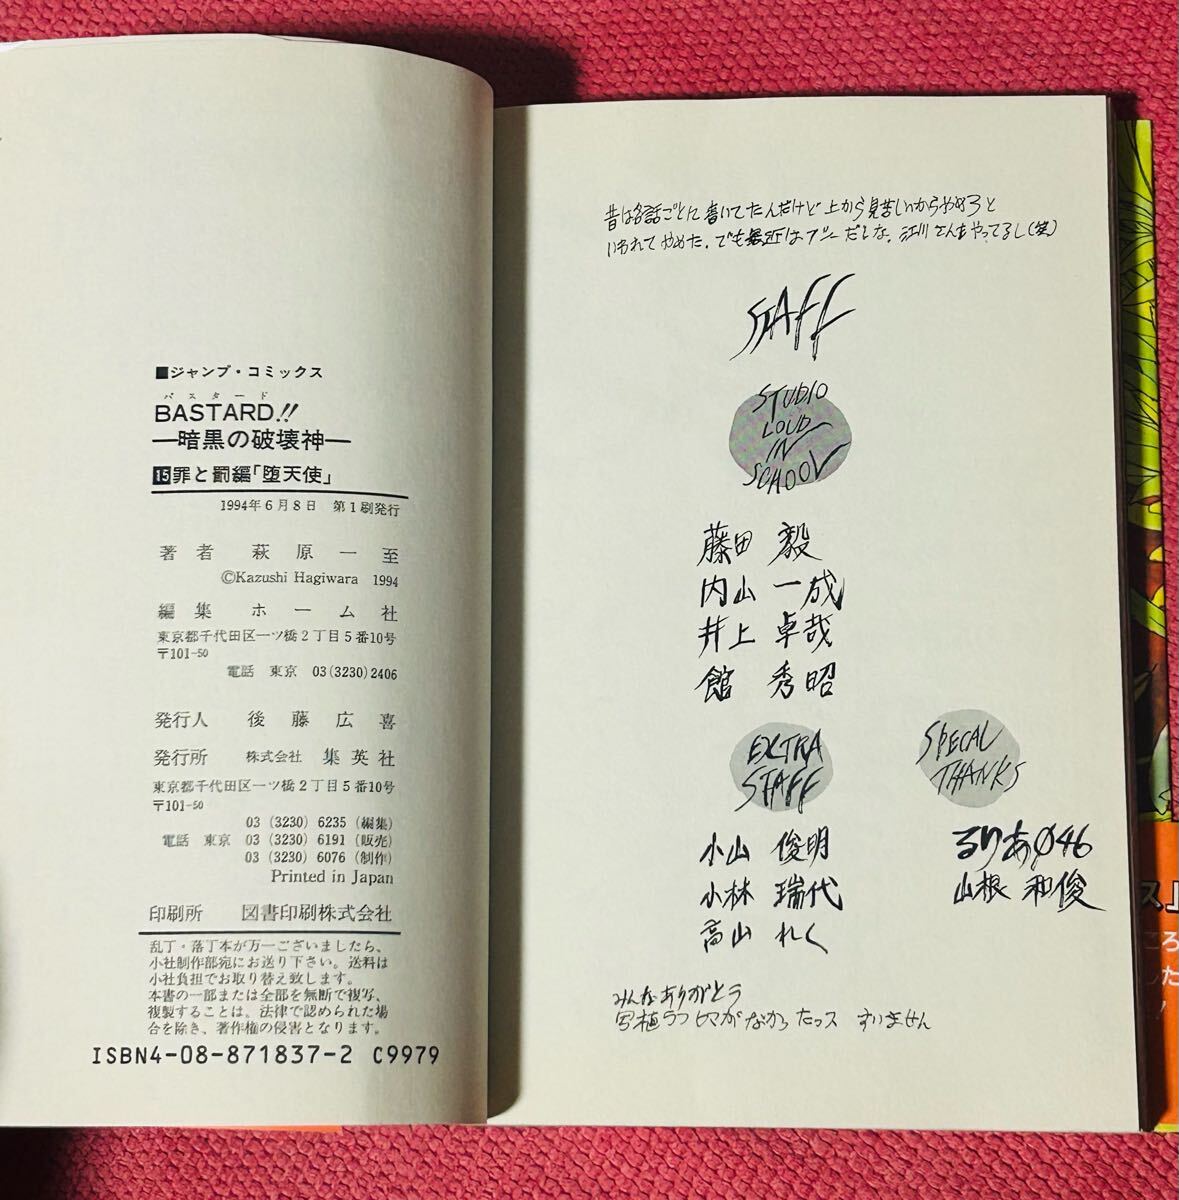 ■ジャンプ・コミックス
バスタード
BASTARD!!
—暗黒の破壊神—
15罪と罰編「堕天使」
1994年6月8日 第1刷発行
著者 萩原一至
©Kazushi Hagiwara 1994
編集 ホーム社
東京都千代田区一ツ橋2丁目5番10号
〒101-50
電話 東京 03(3230)2406
発行人 後藤広喜
発行所 株式会社 集英社
東京都千代田区一ツ橋2丁目5番10号
〒101-50
03(3230)6235(編集)
電話 東京 03(3230)6191(販売)
03(3230)6076(制作)
Printed in Japan
印刷所 図書印刷株式会社
乱丁・落丁本が万一ございましたら、
小社制作部宛にお送り下さい。送料は
小社負担でお取り替え致します。
本書の一部または全部を無断で複写、
複製することは、法律で認められた場
合を除き、著作権の侵害となります。
ISBN4-08-871837-2 C9979
昔は各話ごとに書いてたんだけど上から見苦しいからやめろと
いわれてやめた。でも最近はブームだしな。江川さんもやってるし(笑)
STAFF
STUDIO
LOUD
IN
SCHOOL
藤田 毅
内山 一成
井上 卓哉
館 秀昭
EXTRA
STAFF
小山 俊明
小林 瑞代
高山 れく
SPECAL
THANKS
るりあ046
山根 和俊
みんなありがとう
写植うつヒマがなかったっス すいません
ス』
ころ
した
!